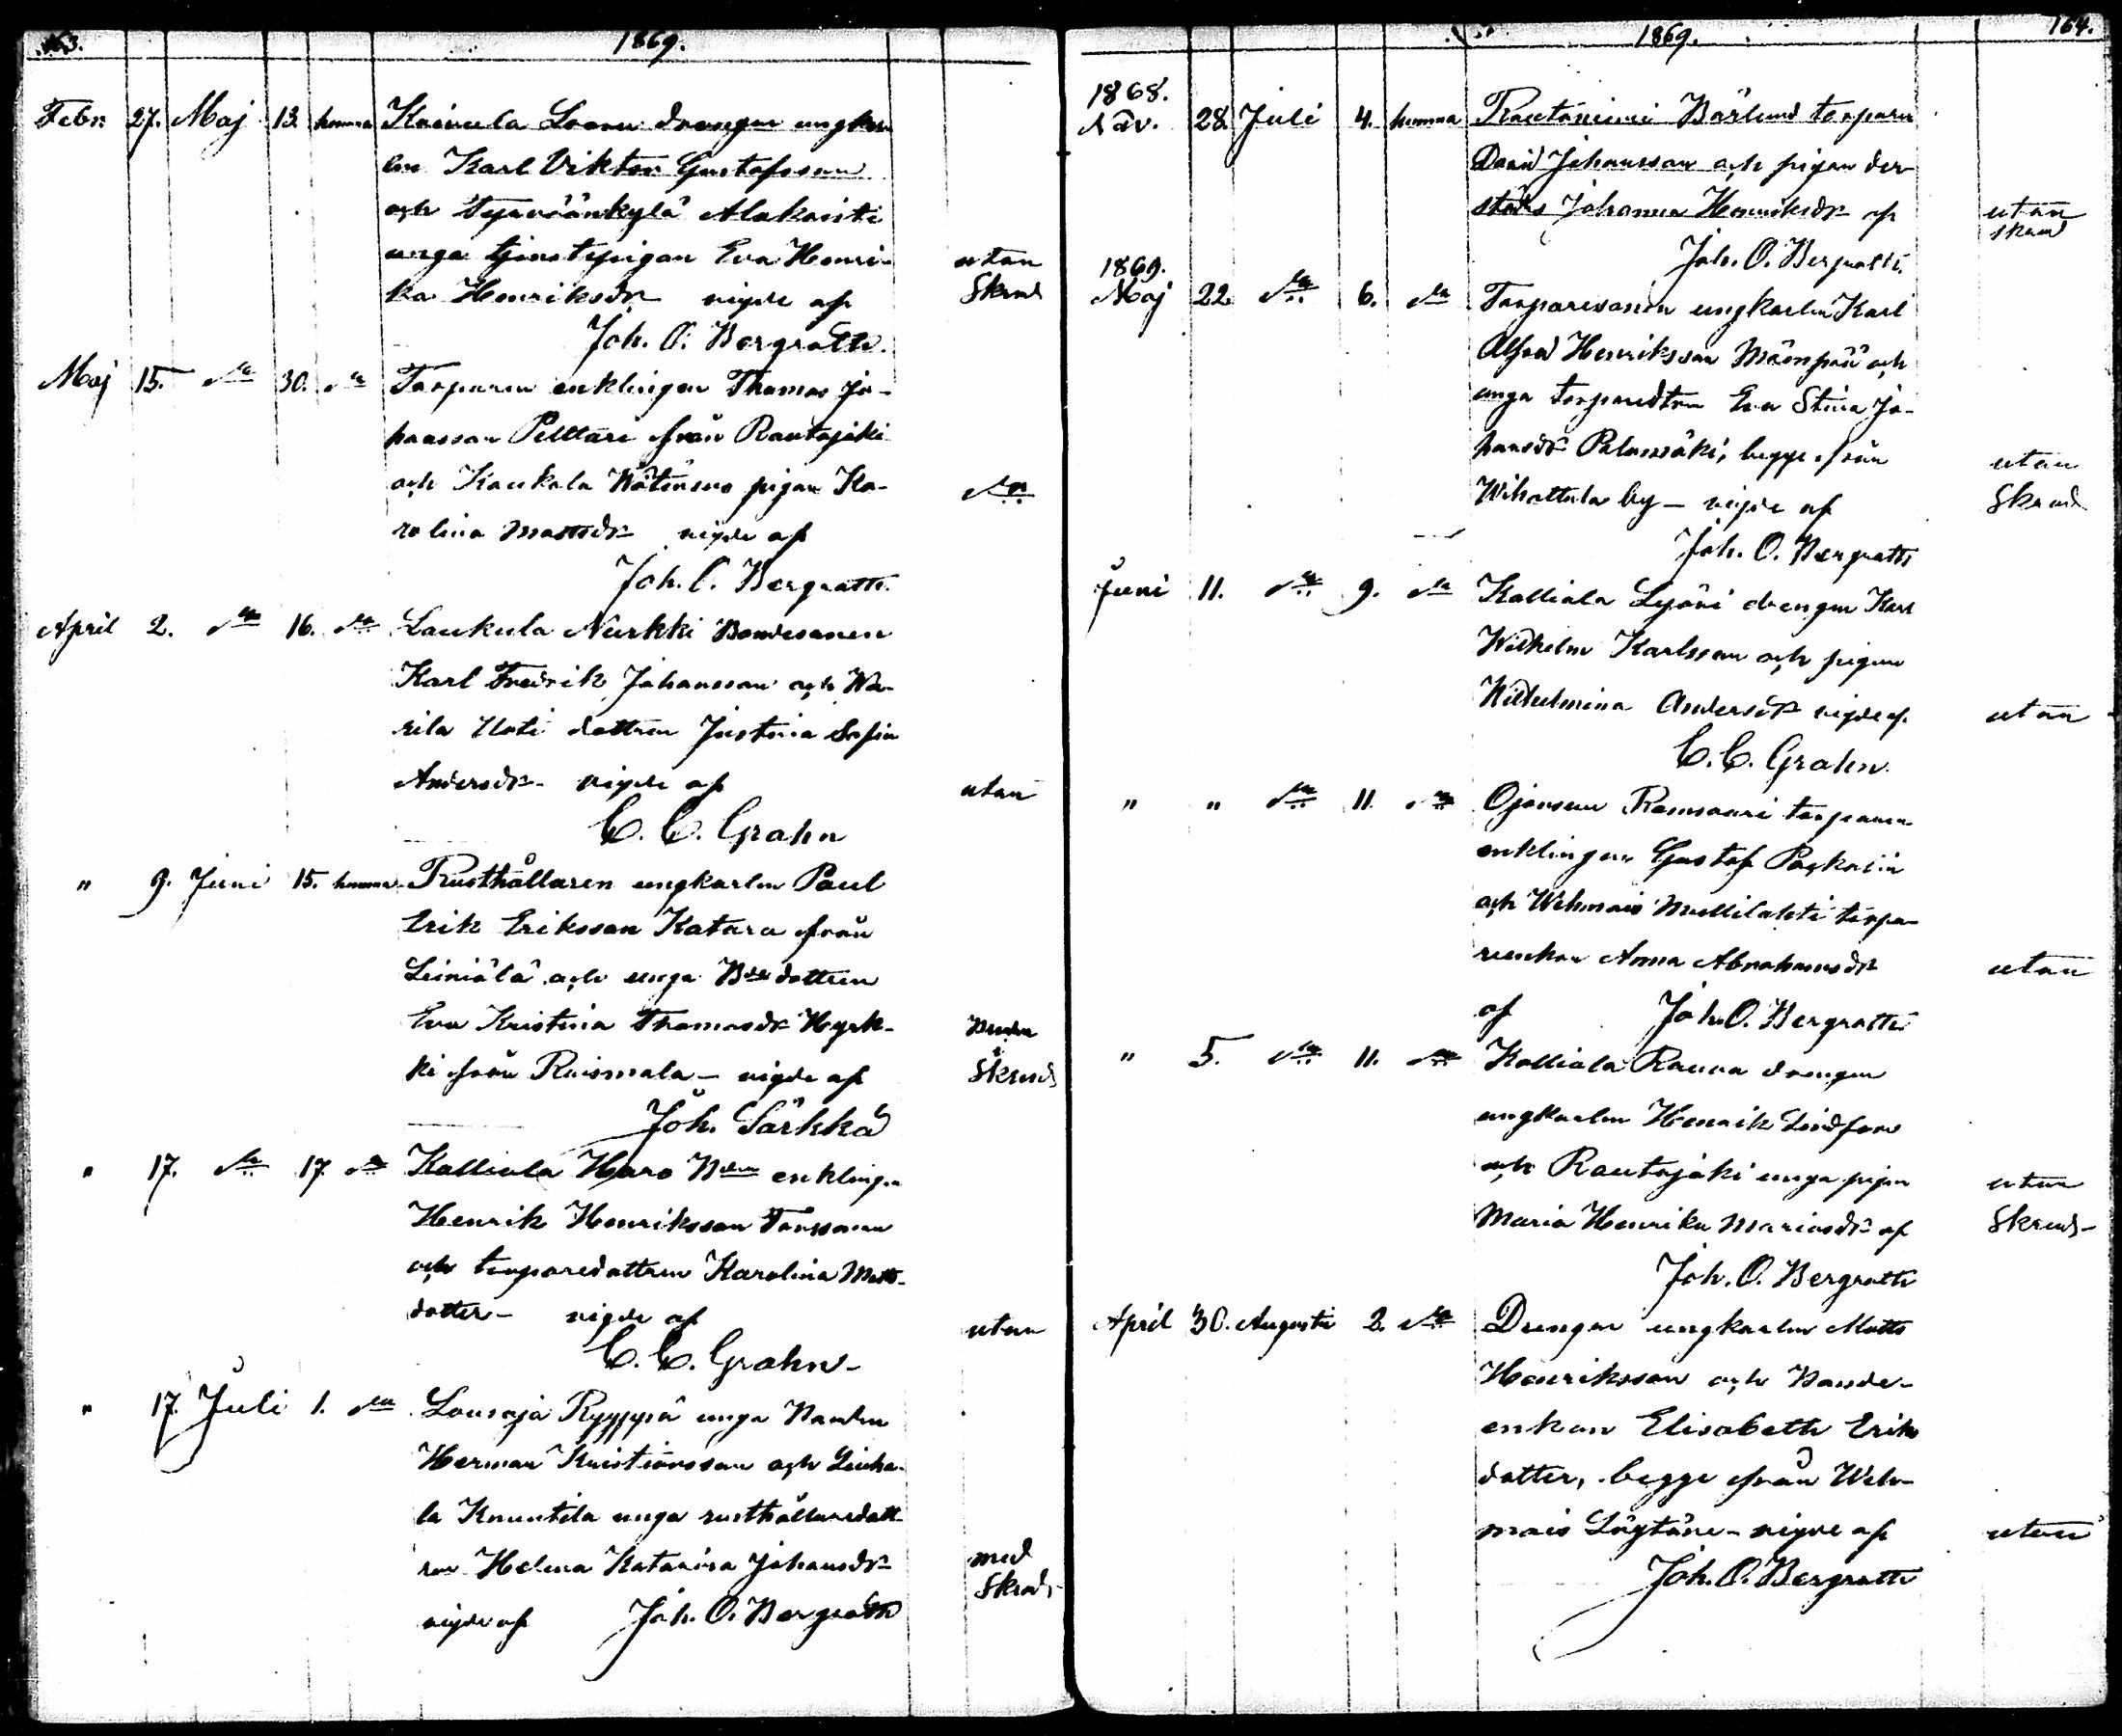 163. 1869.
Febr. 27. Maj 13. hemma Kaivula Loora drengen ungkar-
len Karl Viktor Gustafsson
och Tyrväänkylä Alakaisti
unga tjenstepigan Eva Henri-
ka Henriksdr vigde af utan Skrud
Joh. O. Bergroth.
Maj 15. do 30. do Torparen enklingen Thomas Jo-
hansson Pelttari från Rautajoki
och Kaukola pigan Ka- do
rolina Mattsdr vigde af
Joh. O. Bergroth.
April 2. do 16. do Laukula Nurkki Bondesonen
Karl Fredrik Johansson och Wa-
rila Uoti dottren Justina Sofia
Andersdr vigde af utan
C. C. Grahn
" 9. Juni 15. hemma Rusthållaren ungkarlen Paul
Erik Eriksson Katara från
Liiniälä och unga Bdedottren
Eva Kristina Thomasdr Hyrk-
ki från Ruismala – vigde af Skrud
Joh. Särkkä
" 17. do 17. do Kalliala Haro enklingen
Henrik Henriksson
och torparedottren Karolina Matts-
dotter – vigde af utan
C. C. Grahn –
" 17. Juli 1. do Lousaja Ryyppä unga Bonden
Herman Kristiansson och Liuha-
la Knuutila unga rusthållaredott-
ren Helena Katarina Johansdr med Skrud
vigde af Joh. O. Bergroth
1869. 164.
1868.
Nov. 28. Juli 4. hemma Rautaniemi Bärlund torparen
David Johansson och pigan der-
städes Johanna Henriksdr af utan skrud
Joh. O. Bergroth.
1869.
Maj 22. do 6. do Torparesonen ungkarlen Karl
Alfred Henriksson Mäenpää och
unga torparedtren Eva Stina Jo-
hansdr Palomäki, begge från utan
Wihattula by – vigde af Skrud
Joh. O. Bergroth
Juni 11. do 9. do Kalliala Sejäri drengen Karl
Wilhelm Karlsson och pigan
Wilhelmina Andersdr vigde af utan
C. C. Grahn.
" " do 11. do Ojansuu Ramsaari torparen
enklingen Gustaf
och Wehmais Mullilahti torpa-
reenkan Anna Abrahamsdr utan
af Joh. O. Bergroth
" 5. do 11. do Kalliala Rauva drengen
ungkarlen Henrik Lindfors
och Rautajoki unga pigan utan
Maria Henrika Mariasdr af Skrud –
Joh. O. Bergroth
April 30. Augusti 2. do Drengen ungkarlen Matts
Henriksson och Bonde-
enkan Elisabeth Eriks
dotter, begge från Weh-
mais Löytäne – vigde af utan
Joh. O. Bergroth